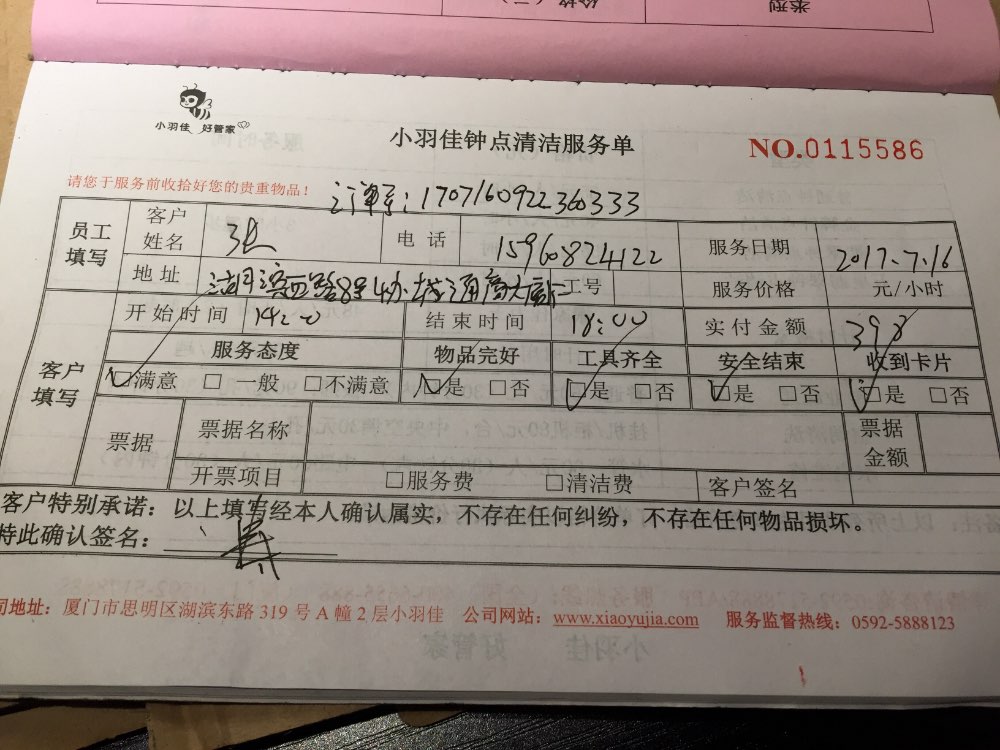 价格（元）
类型
小羽佳 好管家
小羽佳钟点清洁服务单
NO.0115586
请您于服务前收拾好您的贵重物品！
订单号：1707160922360333
员工填写 客户姓名 张 电话 15960824122 服务日期 2017.7.16
地址 湖滨西路8号 大厦 工号 服务价格 元/小时
客户填写 开始时间 14:00 结束时间 18:00 实付金额 398
服务态度 物品完好 工具齐全 安全结束 收到卡片
☑满意 □一般 □不满意 ☑是 □否 ☑是 □否 ☑是 □否 ☑是 □否
票据 票据名称 票据金额
开票项目 □服务费 □清洁费 客户签名
客户特别承诺：以上填写经本人确认属实，不存在任何纠纷，不存在任何物品损坏。
特此确认签名：
司地址：厦门市思明区湖滨东路 319 号 A 幢 2 层小羽佳 公司网站：www.xiaoyujia.com 服务监督热线：0592-5888123